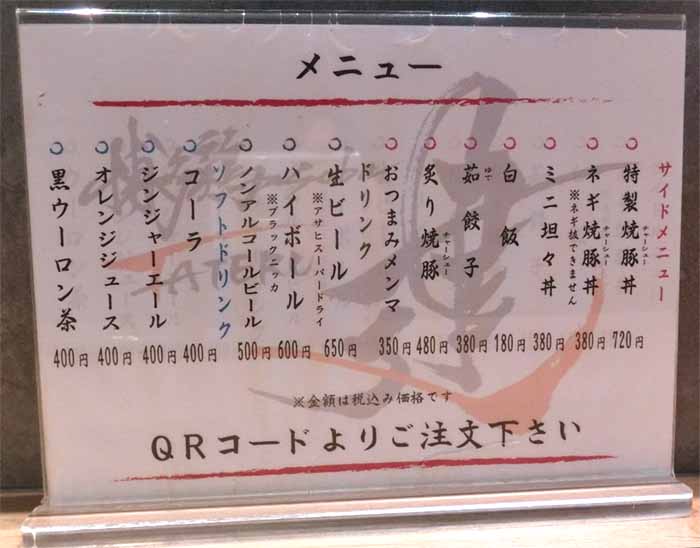 メニュー
サイドメニュー
特製焼豚丼 チャーシュー 720円
ネギ焼豚丼 チャーシュー 380円
※ネギ抜できません
ミニ坦々丼 380円
白飯 180円
茹餃子 ゆで 380円
炙り焼豚 チャーシュー 480円
おつまみメンマ 350円
ドリンク
生ビール 650円
※アサヒスーパードライ
ハイボール 600円
※ブラックニッカ
ノンアルコールビール 500円
ソフトドリンク
コーラ 400円
ジンジャーエール 400円
オレンジジュース 400円
黒ウーロン茶 400円
※金額は税込み価格です
QRコードよりご注文下さい